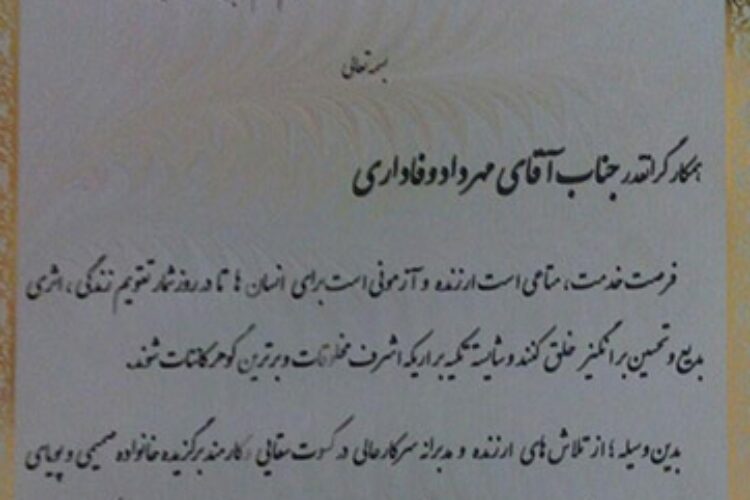 بسمه تعالی
همکار گرانقدر جناب آقای مهرداد وفاداری
فرصت خدمت، متاعی است ارزنده و آزمونی است برای انسان ها تا در روزشمار تقویم زندگی، اثری
بدیع و تحسین برانگیز خلق کنند و شایسته تکیه بر اریکه اشرف مخلوقات و برترین گوهر کائنات شوند.
بدین وسیله؛ از تلاش های ارزنده و مدبرانه سرکارعالی در کسوت سقایی و کارمند برگزیده خانواده صمیمی و پویای